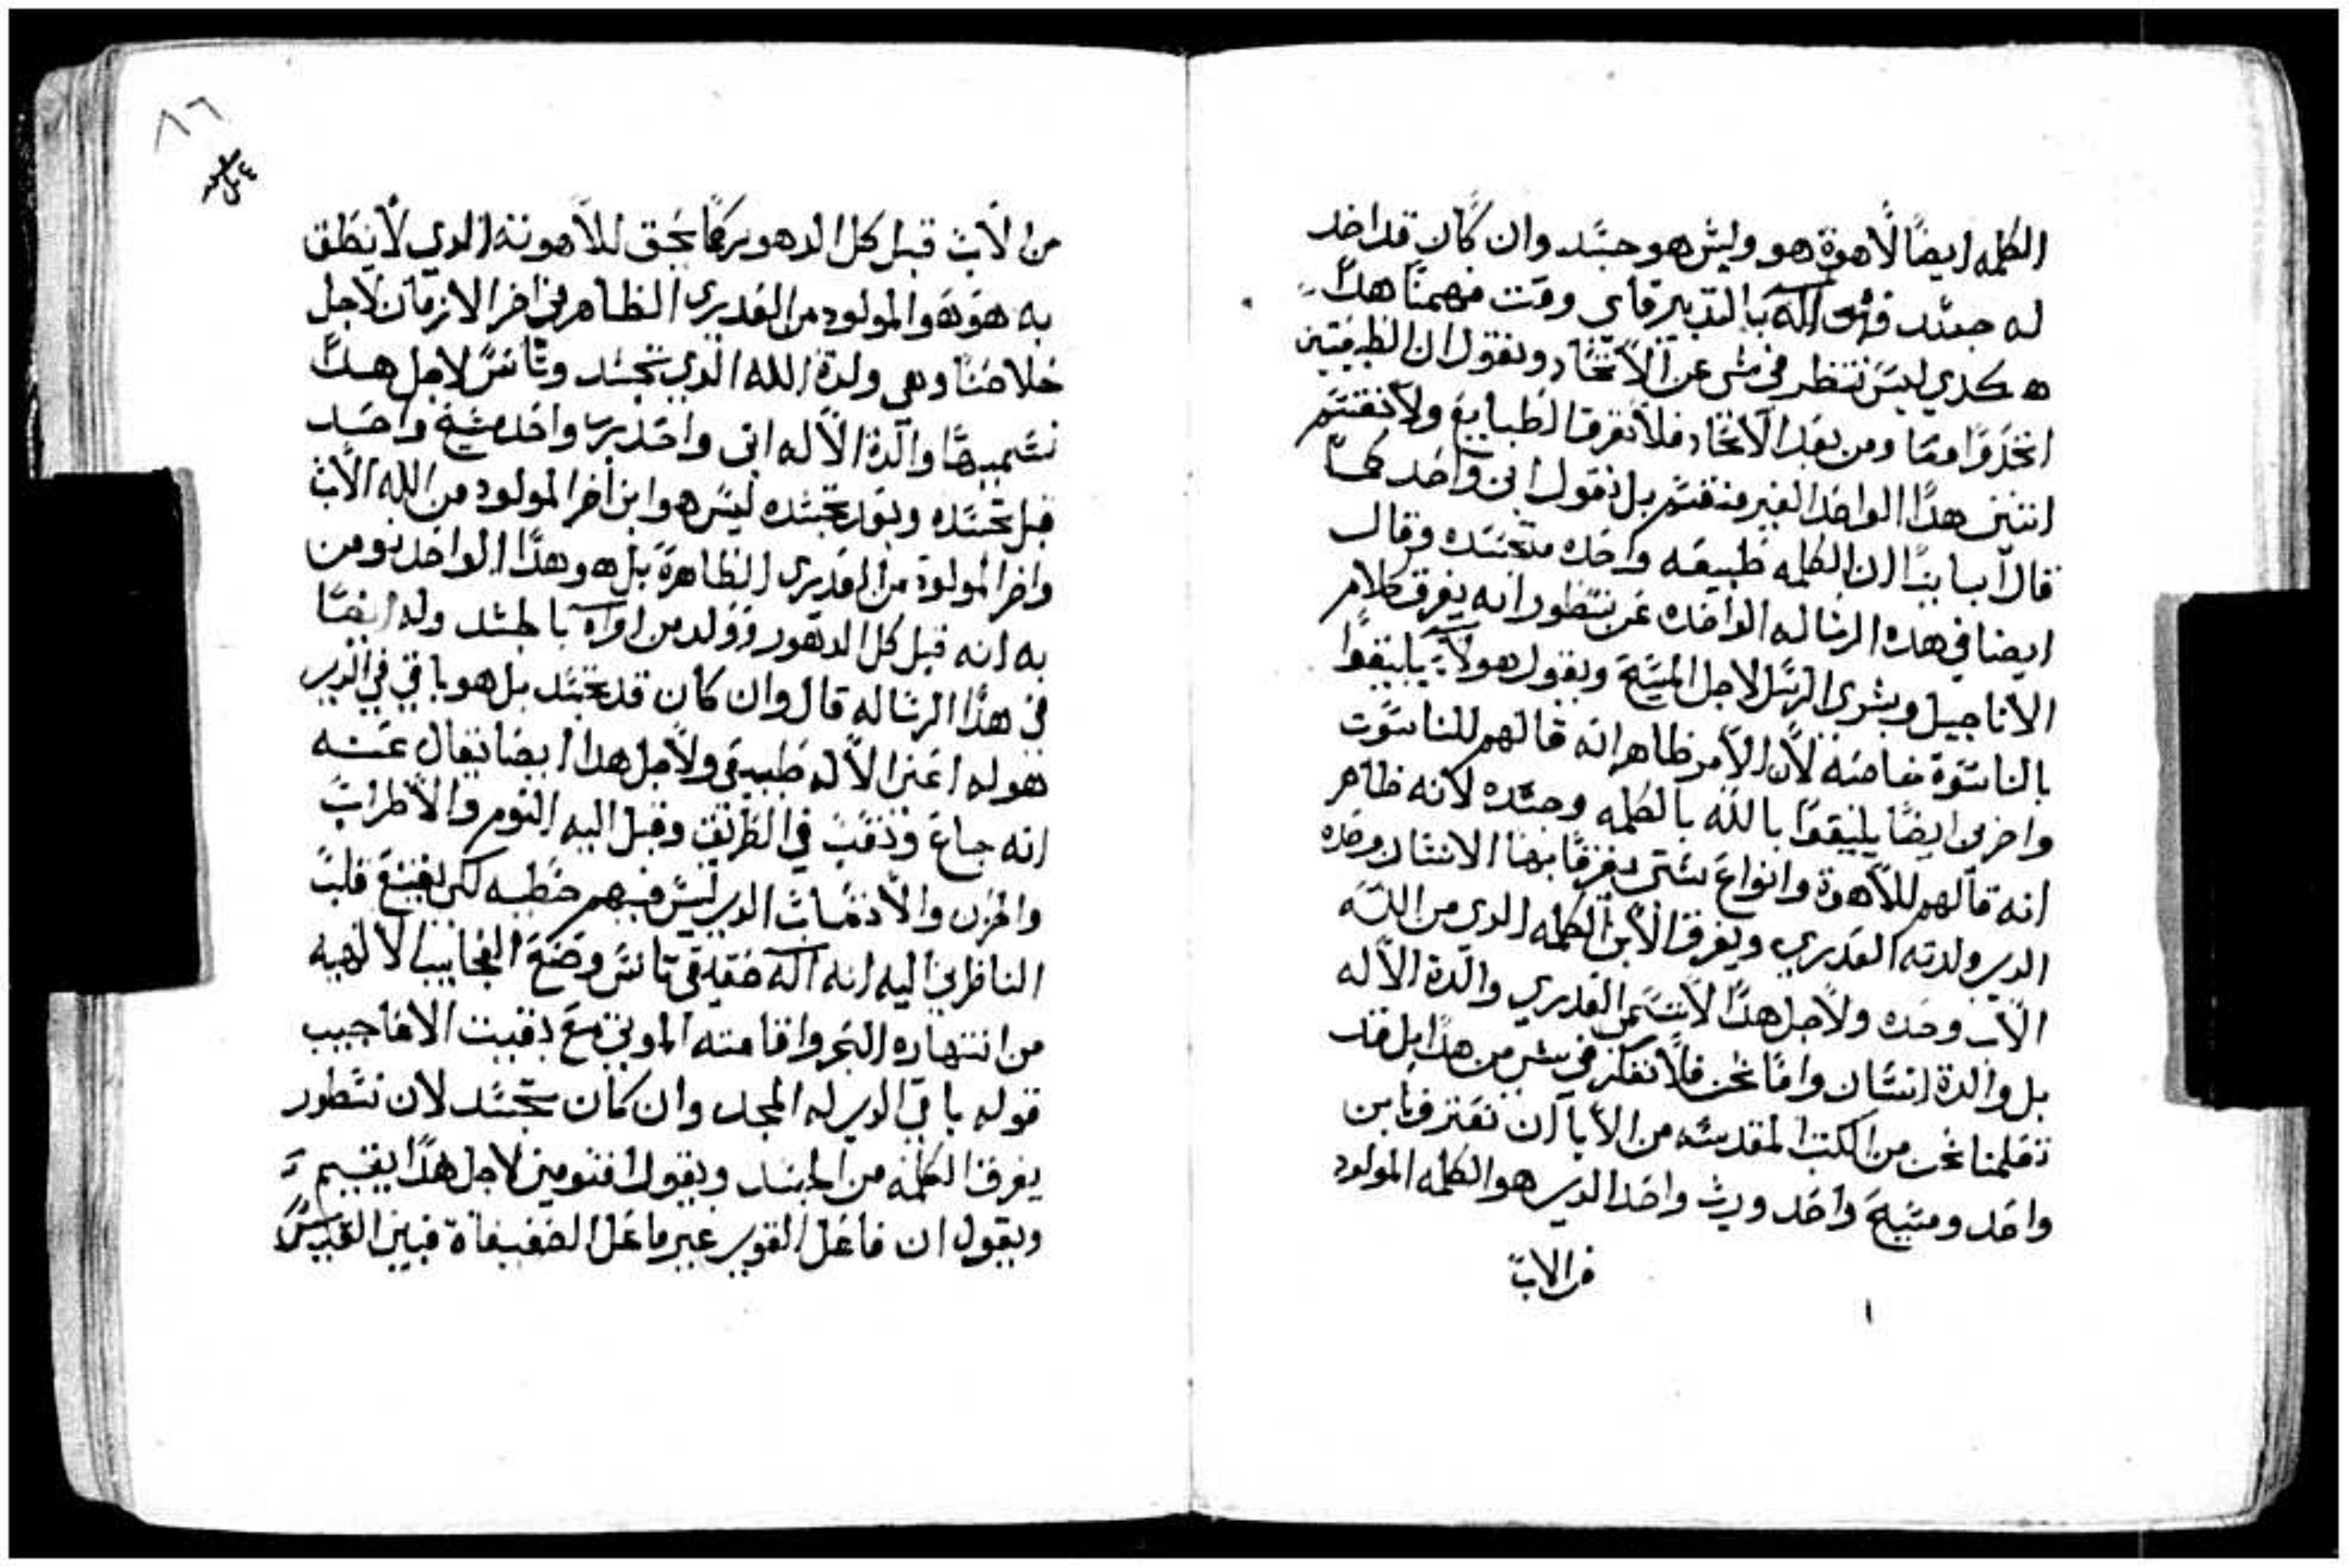 الكلمه ايضًا لاهوة هو وليس هو جسد وان كان قد اخد
له جسد فهو اله بالتدبير فاي وقت فهمنا هدا
هكدي ليس ننظر في شي عن الاتحاد ونقول ان الطبيعتين
اتحدوا معا ومن بعد الاتحاد فلا نفرق الطبايع ولا نقسم
اتنين هدا الواحد الغير منقسم بل نقول ابن واحد كما
قال اباينا ان الكلمه طبيعه واحده متجسده وقال
ايضا في هده الرساله الواحده عن نسطور انه يفرق كلام
الاناجيل وبشري الرسل لاجل المسيح ويقول هولاء يليقوا
بالناسوة خاصه لان الامر ظاهر انه قالهم للناسوت
واخرين ايضًا يليقوا بالله بالكلمه وحده لانه ظاهر
انه قالهم للاهوة وانواع شتى يفرق بها الانسان وحده
الدي ولدته العدري ويفرق الابن الكلمه الدي من الله
الاب وحده ولاجل هدا لا تسمى العدري والدة الاله
بل والدة انسان واما نحن فلا نفكر في شي من هدا بل قد
تعلمنا نحن من الكتب المقدسه من الابا ان نعترف بابن
واحد ومسيح واحد ورب واحد الدي هو الكلمه المولود
من الاب
٨٦
من الاب قبل كل الدهور كما يحق للاهوته الدي لا ينطق
به هو هو المولود من العدري الطاهر في اخر الازمان لاجل
خلاصنا وهي ولدة الله الدي تجسد وتانس لاجل هدا
نسميها والدة الاله ابن واحد رب واحد مسيح واحد
قبل تجسده وبعد تجسده ليس هو ابن اخر المولود من الله الاب
واخر المولود من العدري الطاهرة بل هو هدا الواحد نومن
به انه قبل كل الدهور وولد من امراه بالجسد وله ايضًا
في هدا الرساله قال وان كان قد تجسد بل هو باقي في الدي
هو له اعني الاله طبيعي ولاجل هدا ايضا يقال عنه
انه جاع وتعب في الطريق وقبل اليه النوم والاطراب
والحزن والاوجاع الدي ليس فيهم خطيه لكي يقنع قلب
الناظرين اليه انه اله حقيقي تانس وصنع العجايب الالهيه
من انتهاره البحر واقامته الموتي مع بقيت الاعاجيب
قوله باقي الدي له المجد وان كان تجسد لان نسطور
يفرق الكلمه من الجسد ويقول اقنومين لاجل هدا يقسم
ويقول ان فاعل القوي غير فاعل الضعيفاة فبين القديس